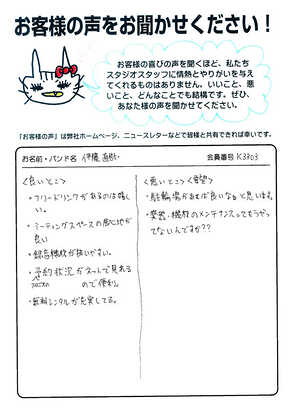 お客様の声をお聞かせください！
お客様の喜びの声を聞くほど、私たち
スタジオスタッフに情熱とやりがいを与え
てくれるものはありません。いいこと、悪
いこと、どんなことでも結構です。ぜひ、
あなた様の声を聞かせてください。
「お客様の声」は弊社ホームページ、ニュースレターなどで皆様と共有できれば幸いです。
お名前・バンド名 伊藤
会員番号 K3303
<良いとこ>
・フリードリンクがあるのは嬉し
い。
・ミーティングスペースの居心地が
良い
・録音機材が扱いやすい。
・予約状況がネットで見れる
ので便利。
・無料レンタルが充実してる。
<悪いとこ><要望>
・駐輪場があれば良いなぁと思います。
・楽器・機材のメンテナンスってもうやっ
てないんですか??